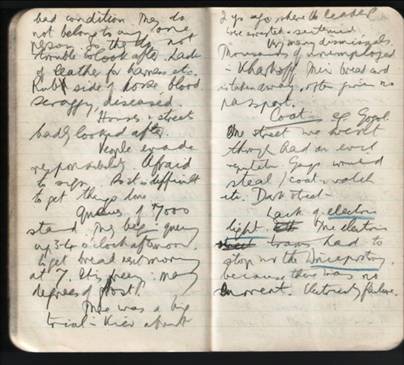 bad condition. They do
not belong to any one
person so they do not
trouble to look after. Lack
of leather for harness etc.
Rub side of horse, blood
scraggy, diseased.
Houses & streets
badly looked after.
People evade
responsibility. Afraid
to sign. So it is difficult
to get things done
Queues of 7000
stand. They begin queuing
up 3-4 o'clock afternoon
to get bread next morning
at 7. It is freezing: many
degrees of frost.
There was a big
trial - Kiev about
2 yrs ago where the leaders
were arrested & sentenced.
Very many dismissals.
Thousands of unemployed
- Kharkoff. Their bread card
is taken away, often given no
passport.
Coat cf Gogol.
One street we weren't
through had an evil
reputation. Gangs would
steal / coat watch
etc. Dark street -
Lack of electric
light. The electric
trams had to
stop on the Dnieprostroy
because there was no
current. Electricity failure.